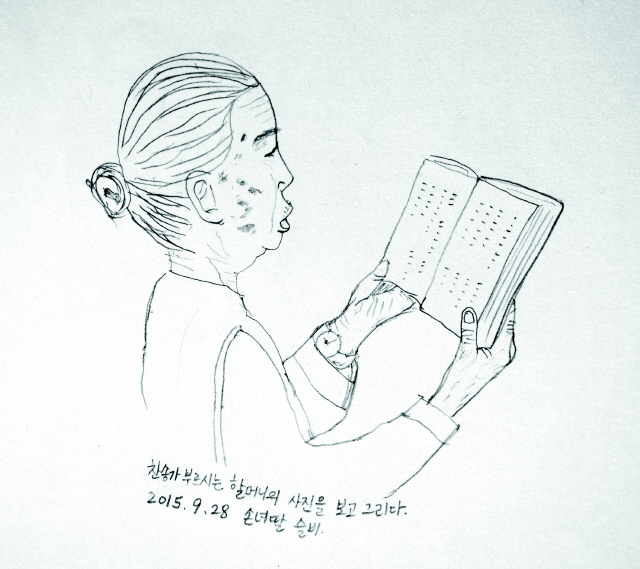 찬송가 부르시는 할머니의 사진을 보고 그리다.
2015. 9. 28 손녀딸 슬비.